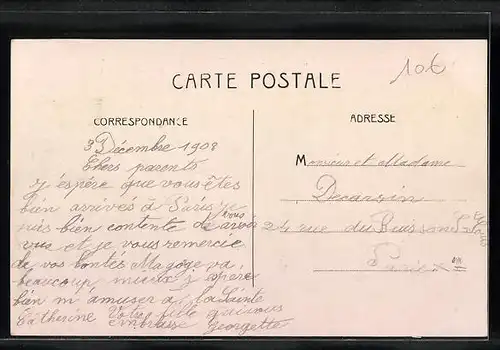 10€
CARTE POSTALE
CORRESPONDANCE
ADRESSE
3 Décembre 1908
Chers parents
j'éspére que vous êtes
bien arrivés à Paris je
suis bien contente de vous avoir
vus et je vous remercie
de vos bontés Ma gorge va
beaucoup mieux j'espére
bien m'amuser a la Sainte
Catherine Votre fille qui vous
embrasse Georgette
Monsieur et Madame
Decarsin
24 rue du Buisson St Louis
Paris X